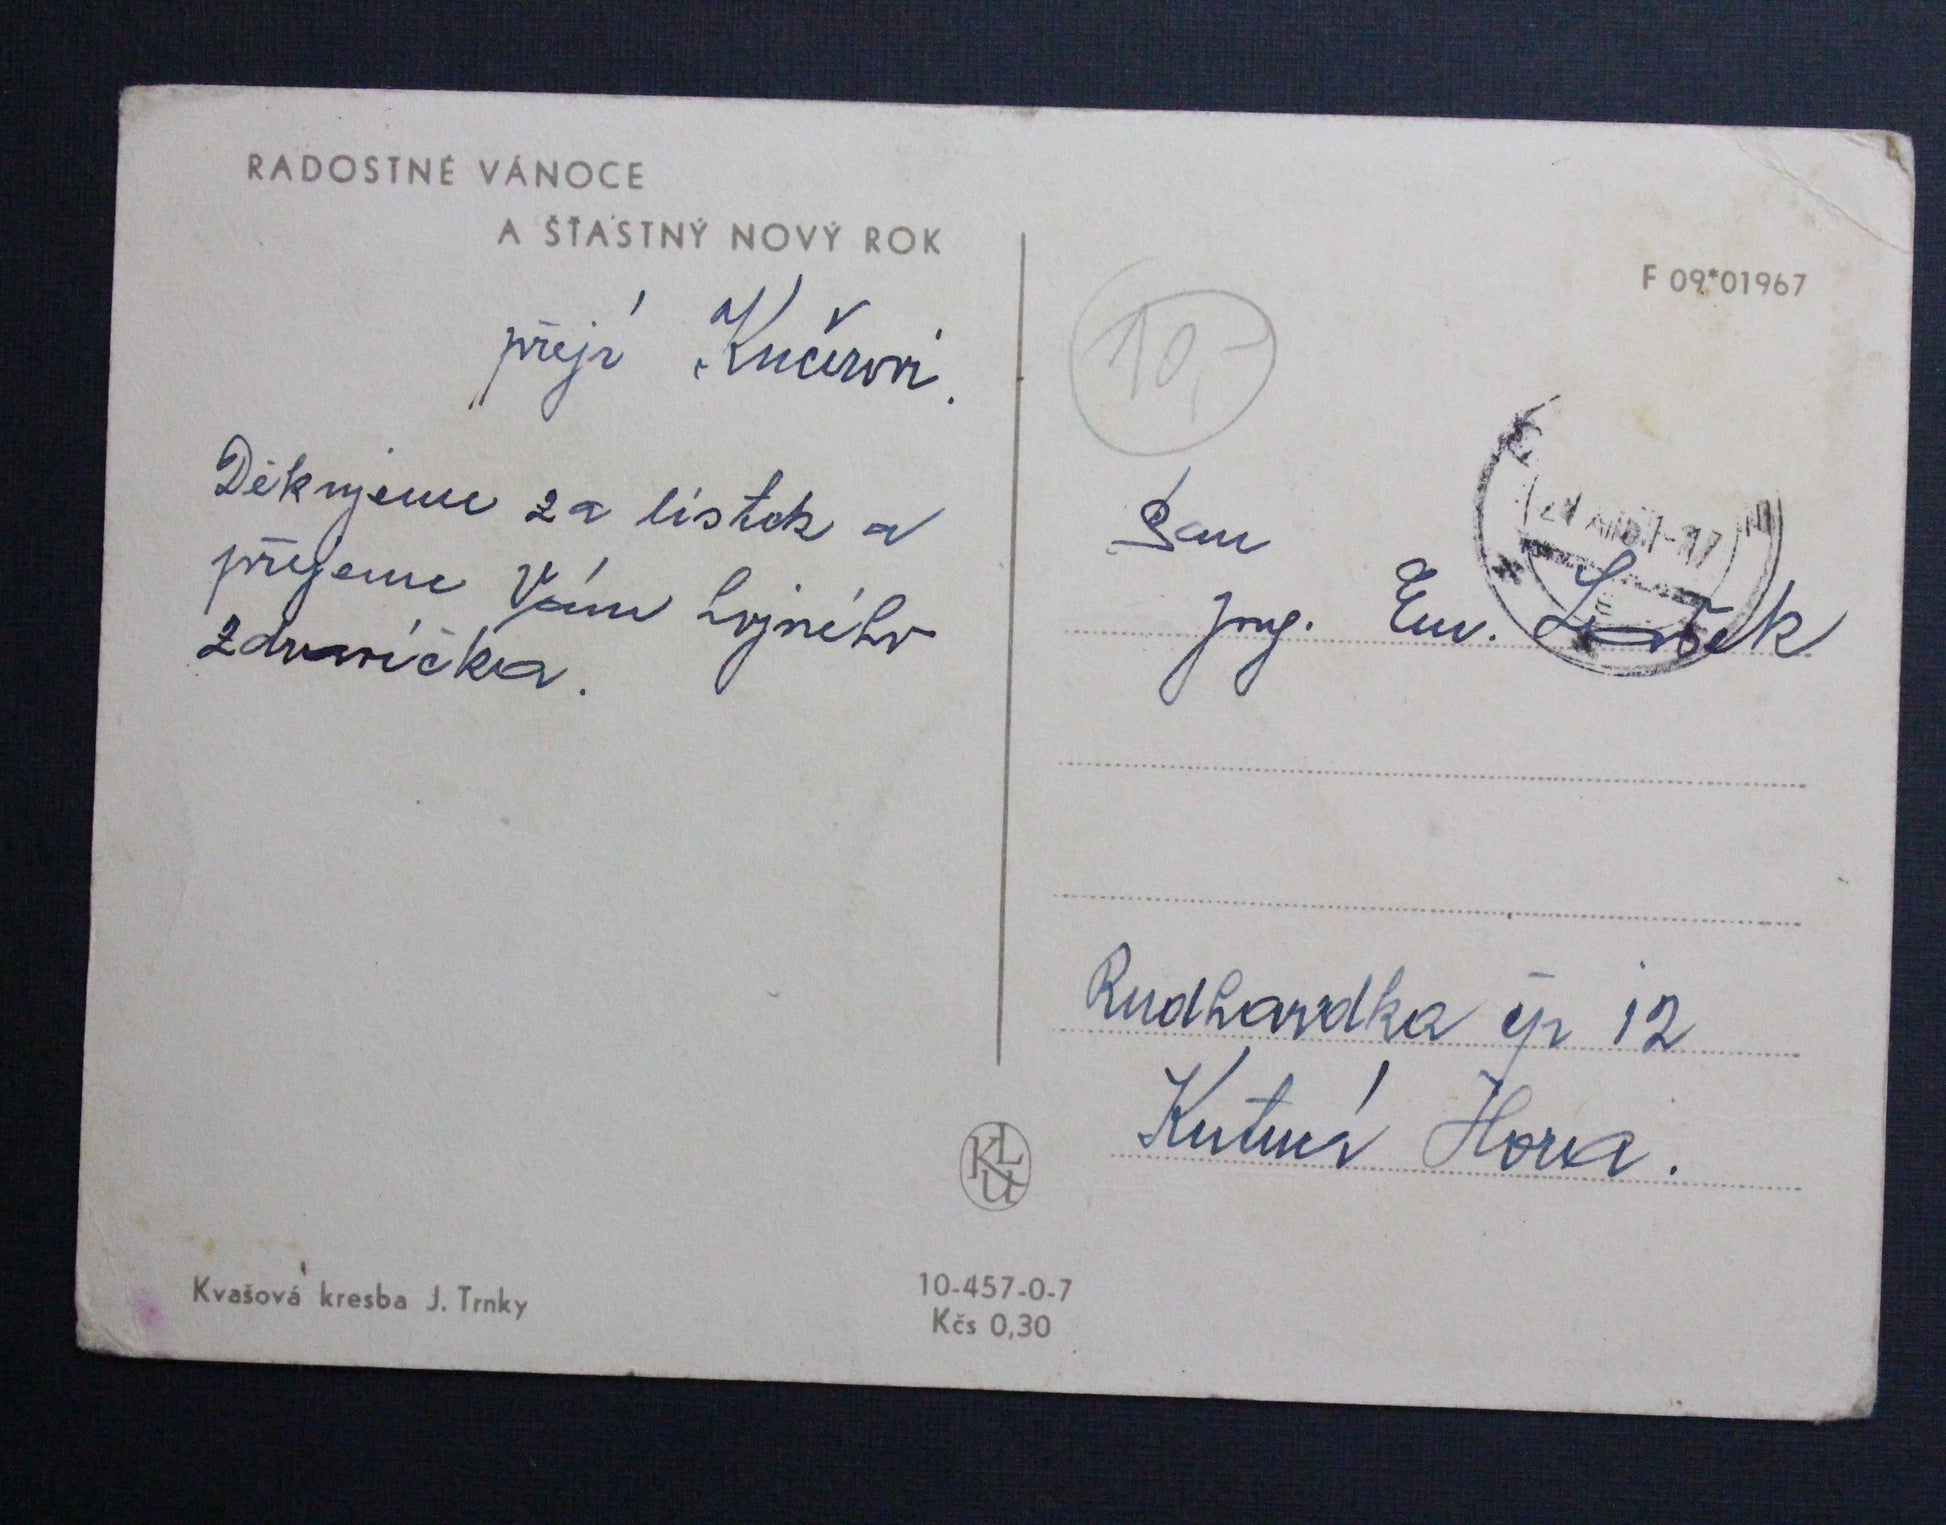 RADOSTNÉ VÁNOCE
A ŠŤASTNÝ NOVÝ ROK
přejí Kučerovi.
Děkujeme za lístek a
přejeme Vám hojného
zdravíčka.
Kvašová kresba J. Trnky
10-457-0-7
Kčs 0,30
KLU
F 09*01967
10,-
Pan
Jng. Em.
Rudhardka čp 12
Kutná Hora.